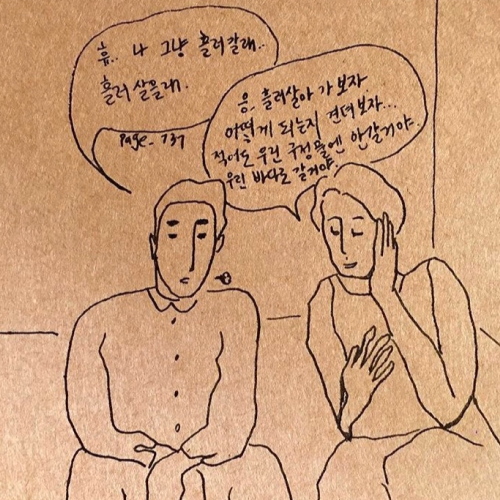 휴.. 나 그냥 흘러갈래..
흘러 살을래.
page_ 137
응. 흘러살아 가 보자
어떻게 되는지 견뎌보자...
적어도 우린 구정물엔 안갈거야.
우린 바다로 갈거야